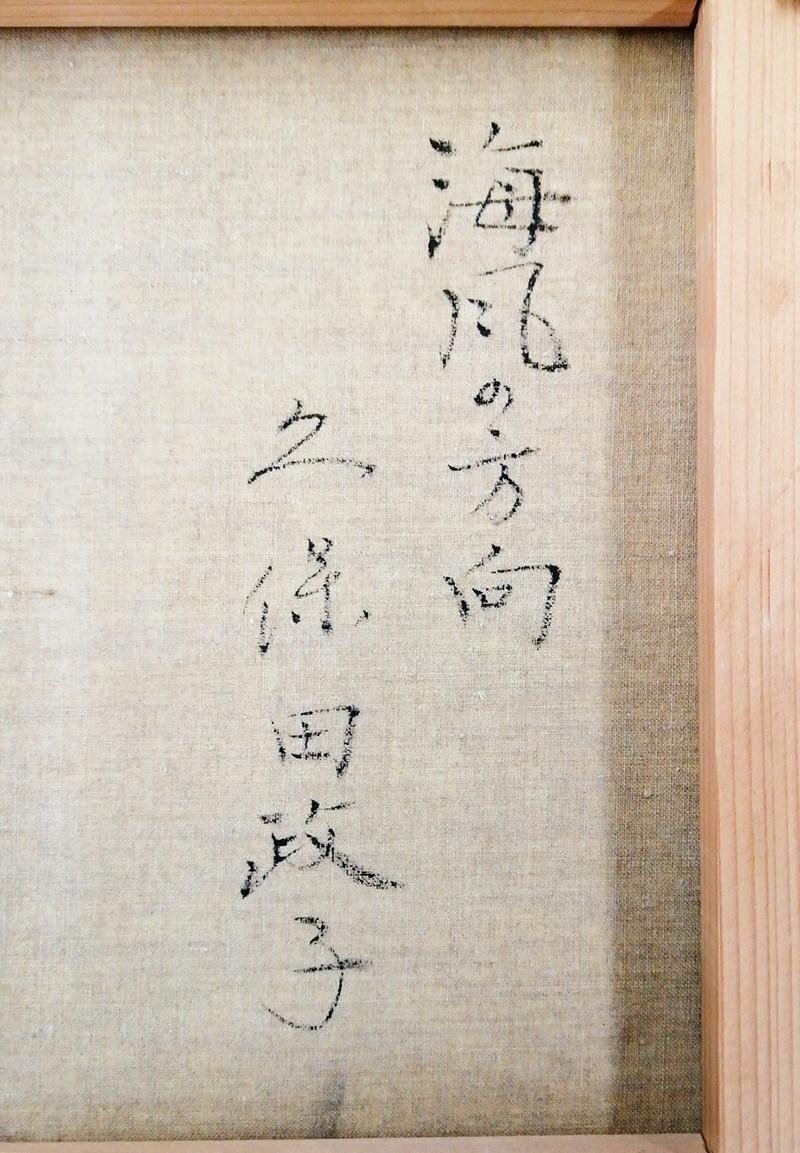 海風の方向
久保田政子